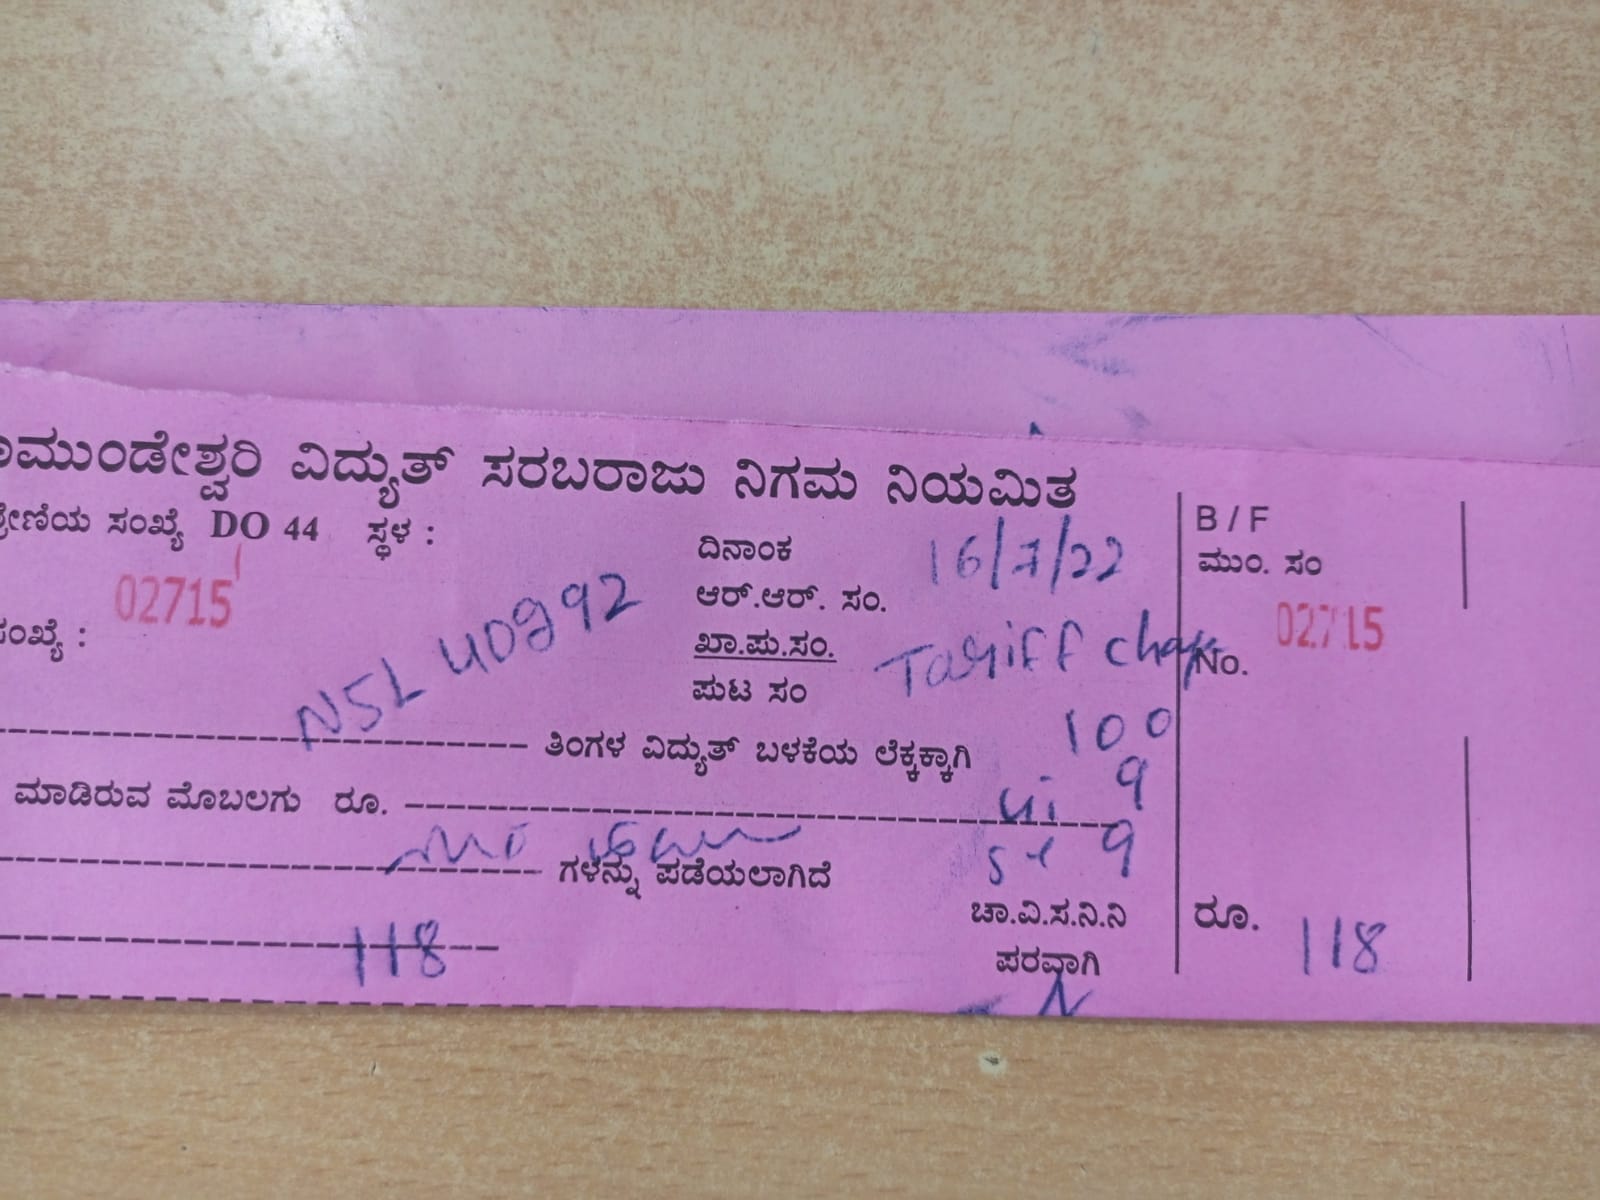 ಾಮುಂಡೇಶ್ವರಿ ವಿದ್ಯುತ್ ಸರಬರಾಜು ನಿಗಮ ನಿಯಮಿತ
ಶ್ರೇಣಿಯ ಸಂಖ್ಯೆ DO 44 ಸ್ಥಳ :
ದಿನಾಂಕ 16/7/22
02715
ಆರ್.ಆರ್. ಸಂ.
ಸಂಖ್ಯೆ :
NSL 40992
ಖಾ.ಪು.ಸಂ. Tariff
ಪುಟ ಸಂ
100
ತಿಂಗಳ ವಿದ್ಯುತ್ ಬಳಕೆಯ ಲೆಕ್ಕಕ್ಕಾಗಿ
9
ಮಾಡಿರುವ ಮೊಬಲಗು ರೂ.
9
ಗಳನ್ನು ಪಡೆಯಲಾಗಿದೆ
118
ಚಾ.ವಿ.ಸ.ನಿ.ನಿ
ಪರವಾಗಿ
B / F
ಮುಂ. ಸಂ
02715
No.
ರೂ. 118